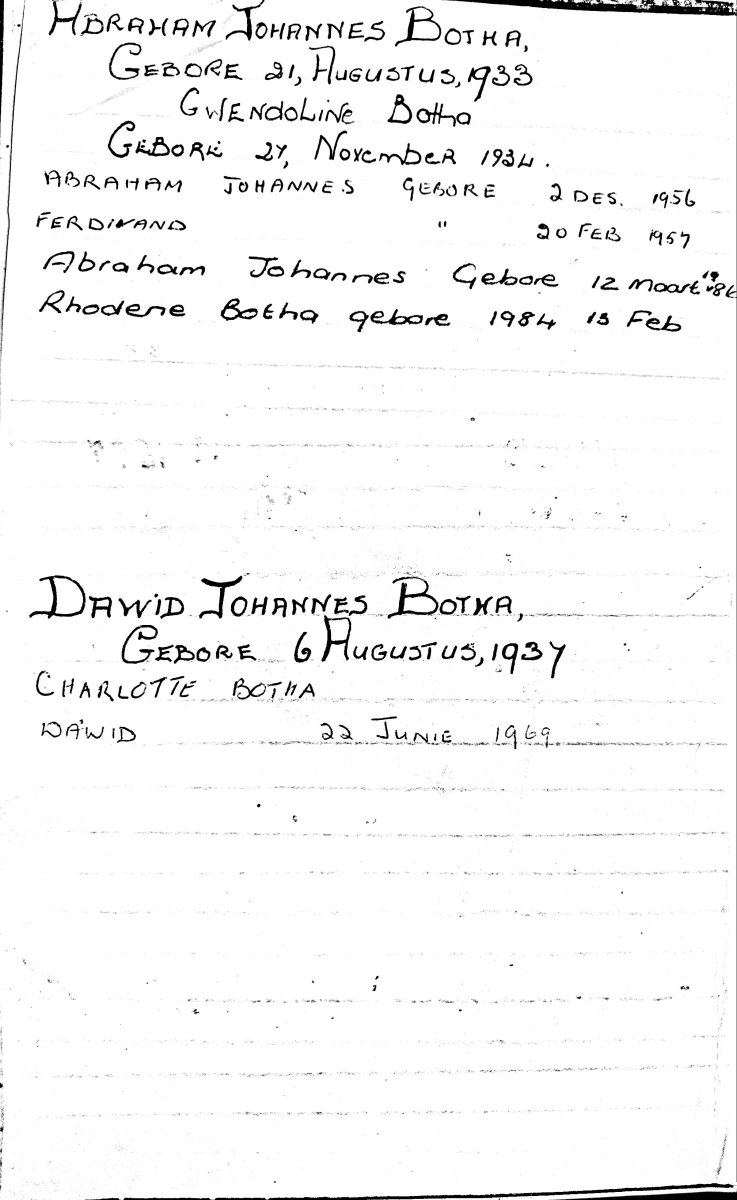 ABRAHAM JOHANNES BOTHA,
GEBORE 21, AUGUSTUS, 1933
GWENDOLINE Botha
GEBORE 27, November 1934.
ABRAHAM JOHANNES GEBORE 2 DES. 1956
FERDINAND " 20 FEB 1957
Abraham Johannes Gebore 12 maart 1986
Rhodene Botha gebore 1984 13 Feb
DAWID JOHANNES BOTHA,
GEBORE 6 AUGUSTUS, 1937
CHARLOTTE BOTHA
DAWID 22 JUNIE 1969